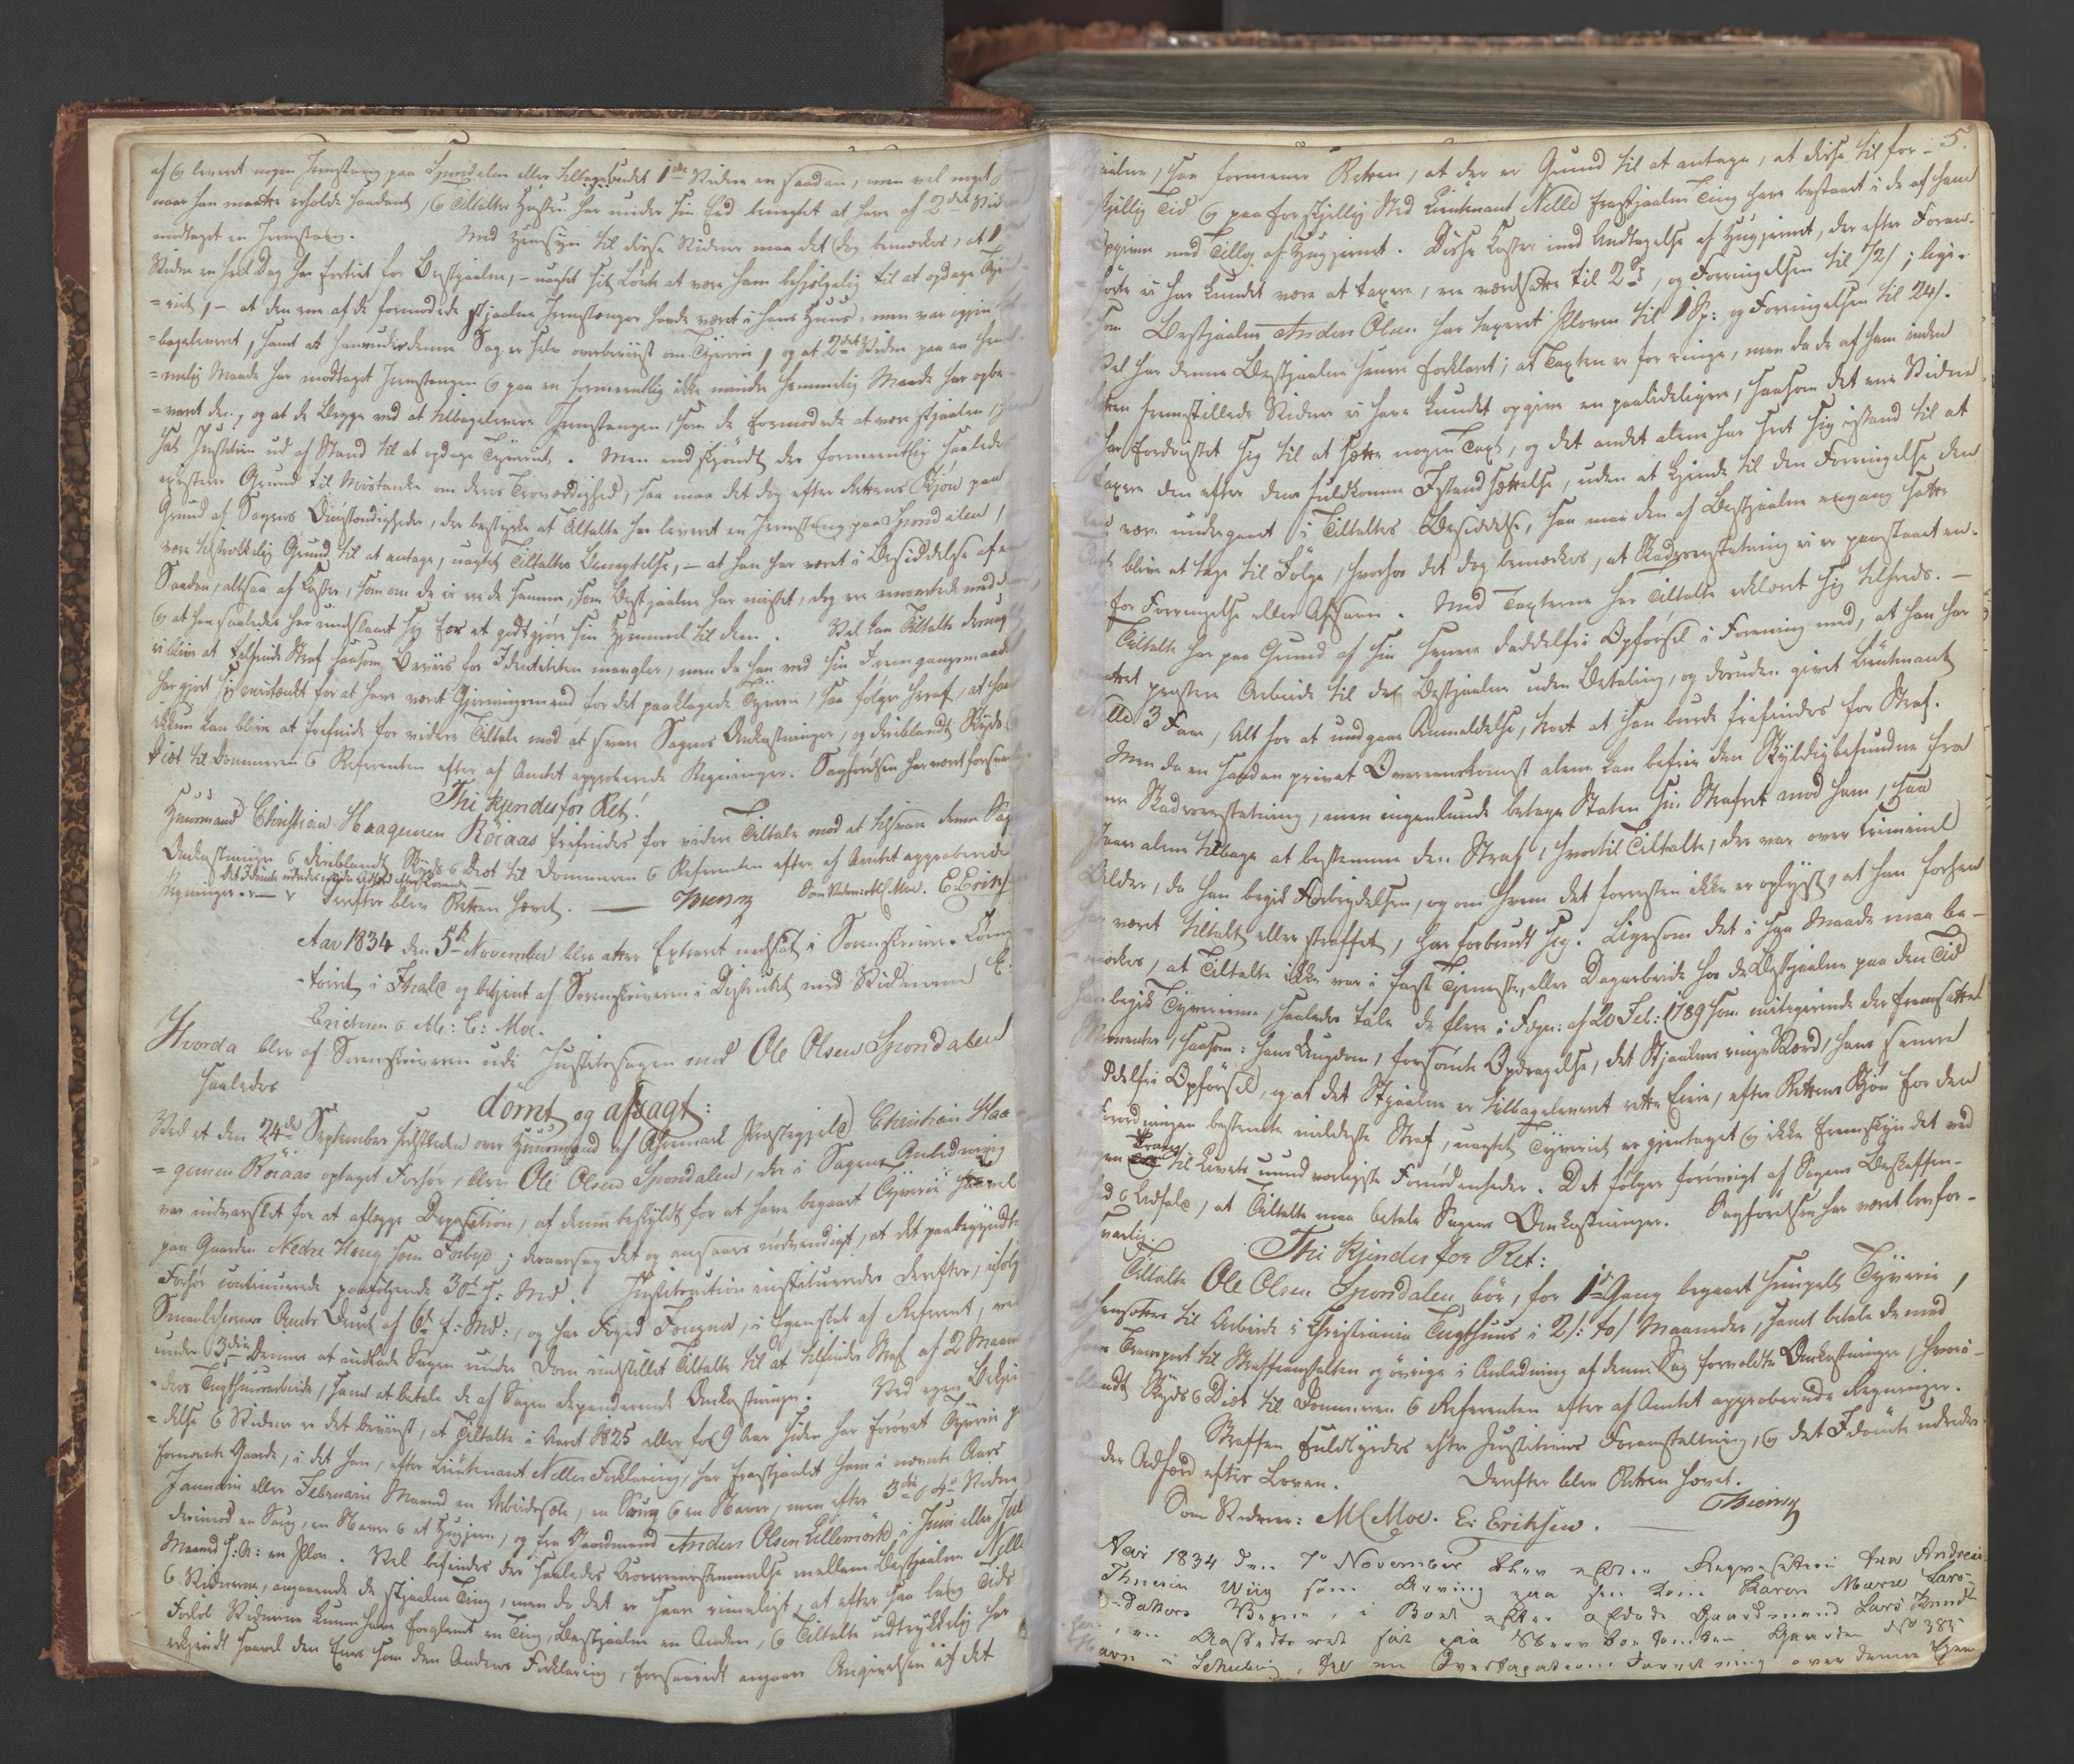 af & leveret nogen Jernstang paa Spondalen eller tilbagesendt 1ste Vidne en saadan, men vel negt
naar han maatte erholde saadant, & Tiltaltes Hustru har under sin Eed benegtet at have af 2det Vidne
modtaget en Jernstang. Med Hensyn til disse Vidner maa det dog bemærkes, at 1
Vidne en heel Dag har fortiet for Bestjaalne, – uagtet sit Løvte at være ham behjelpelig til at opdage Tyve
=riet, – at den ene af de formodede stjaalne Jernstænger havde været i hans Huus, men var igjen til
=bageleveret, samt at han under denne Sag er selv overbeviist om Tyverie, og at 2det Vidne paa en hem
=melig Maade har modtaget Jernstangen & paa en formeentlig ikke mindre hemmelig Maade har opbe
=varet den, og at de Begge ved at tilbagelevere Jernstangen, som de formodede at være stjaalen, have
sat Justitien ud af Stand til at opdage Tyveriet. Men endskjøndt der formeentlig saaledes
existerer Grund til Mistanke om deres Troværdighed, saa maa det dog efter Rettens Skjøn paa
Grund af Sagens Omstændigheder, der bestyrke at Tiltalte har leveret en Jernstang paa Spondalen,
være tilstrækkelig Grund til at antage, uagtet Tiltaltes Benegtelse, – at han har været i Besiddelse af en
Saadan, altsaa af Koster, som om de ei ere de samme, som Bestjaalne har mistet, dog ere eensartede med dem,
& at han saaledes har undslaaet sig for at godtgjøre sin Hjemmel til dem. Vel kan Tiltalte derved
ei blive at tilfinde Straf saasom Beviis for Identiteten mangler, men da han ved sin Fremgangsmaade
har gjort sig mistænkt for at have været Gjerningsmand for det paaklagede Tyverie, saa følger heraf, at han
ikkun kan blive at frifinde for videre Tiltale mod at svare Sagens Omkostninger, og deriblandt Skyds &
Diæt til Dommeren & Referenten efter af Amtet approberede Regninger. Sagførelsen har været forsvarlig.
Thi kjendes for Ret!
Huusmand Christian Haagensen Röiaas frifindes for videre Tiltale mod at tilsvare denne Sags
Omkostninger & deriblandt Skyds & Diæt til Dommeren & Referenten efter af Amtet approberede
Det Idömte udredes under Adfærd efter Loven.
Regninger. Derefter blev Retten hævet. — Thuenig Som Vidner M C Moe. E. Erichsen
Aar 1834 den 5te November blev atter Extraret nedsat i Sorenskriver-Con
-toiret i Thale og betjent af Sorenskriveren i Distriktet med Vidnerne E:
Erichsen & M: C: Moe.
Hvorda blev af Sorenskriveren udi Justitssagen mod Ole Olsen Spondalen
saaledes
dömt og afsagt:
Ved et den 24de September sidstleden over Huusmand af Præstegjeld Christian Haa
=gensen Röiaas optaget Forhør, blev Ole Olsen Spondalen, der i Sagens Anledning
var indvarslet for at aflægge Deposition, af denne beskyldt for at have begaaet Tyverie saavel
paa Gaarden Nedre Haug som Forbye; hvorfor det og ansaaes nødvendigt, at det paabegyndte
Forhør continuerede paafølgende 30te s: Md. Justitsaction institueredes derefter, ifølge
Smaalehnenes Amts Ordre af 6te f: Md:, og har Foged Fougner, i Egenskab af Referent, ved
under 3die Dennes at indlade Sagen under Dom indstillet Tiltalte til at tilfindes Straf af 2 Maane
-ders Tugthuusarbeide, samt at betale de af Sagen dependerende Omkostninger. Ved egen Bekjen
=delse & Vidner er det beviist, at Tiltalte i Aaret 1825 eller for 9 Aar siden har forøvet Tyverie paa
fornævnte Gaarde, i det han, efter Lieutenant Nelles Forklaring, har frastjaalet ham i nævnte Aars
Januarii eller Februarii Maaned en Arbeidsøxe, en Saug & en Navar, men efter 3die & 4de Vidne
derimod en Saug, en Navar & et Hugjern, og fra Gaardmand Anders Olsen Lillemörk i Juni eller Juli
Maaned s: A: en Plov. Vel befindes der saaledes Uoverensstemmelse mellem Bestjaalne Nelle
& Vidnerne, angaaende de stjaalne Ting, men da det er saare rimeligt, at efter saa lang Tids
Forløb Vidnerne kunne have forglemt en Ting, Bestjaalne en Anden, & Tiltalte udtrykkelig har
erkjendt saavel den Enes som den Andens Forklaring, forsaavidt angaaer Angivelsen af det
5.
Stjaalne, saa formener Retten, at der er Grund til at antage, at disse til for-
skjellig Tid & paa forskjellig Sted Lieutenant Nelle frastjaalne Ting have bestaaet i de af ham
opgivne med Tillæg af Hugjernet. Disse Koster med Undtagelse af Hugjernet, der efter Foran-
førte ei har kundet være at taxere, ere værdsatte til 2 , og Forringelsen til 12/; lige-
som Bestjaalne Anders Olsen har taxeret Ploven til 1 Sp: og Forringelsen til 24/.
Vel har denne Bestjaalne senere forklaret, at Taxten er for ringe, men da de af ham inden
Retten fremstillede Vidner ei have kundet opgive en paalideligere, saasom det ene Vidne
har fordristet sig til at sætte nogen Taxt, og det andet alene har seet sig istand til at
taxere den efter dens fuldkomne Istandsættelse, uden at kjende til den Forringelse den
kan være undergaaet i Tiltaltes Besiddelse, saa maa den af Bestjaalne engang satte
Taxt blive at tage til Følge, hvorhos det dog bemærkes, at Skadeserstatning ei er paastaaet en-
-ten for Forringelse eller Afsavn. Med Taxterne har Tiltalte erklæret sig tilfreds. —
Tiltalte har paa Grund af sin senere daddelfri Opførsel i Forening med, at han har
præstere Arbeide til den Bestjaalne uden Betaling, og desuden givet Lieutenant
Nelle 3 Faar, Alt for at undgaae Anmeldelse, troet at han burde frifindes for Straf.
Men da en saadan privat Overeenskomst alene kan befrie den Skyldigbefundne fra
Skadeserstatning, men ingenlunde betage Staten sin Strafret mod ham, saa
staaer alene tilbage at bestemme den Straf, hvortil Tiltalte, der var over criminel
Alder, da han begik Forbrydelsen, og om hvem det forresten ikke er oplyst, at han forhen
har været tiltalt eller straffet, har forbrudt sig. Ligesom det i saa Maade maa be-
-mærkes, at Tiltalte ikke var i fast Tjeneste, eller Dagarbeide hos de Bestjaalne paa den Tid
han begik Tyverierne, saaledes tale de flere i Frgn: af 20 Feb: 1789 som mitigerende der fremsatte
Momenter, saasom: hans Ungdom, forsømte Opdragelse, det Stjaalnes ringe Værd, hans senere
daddelfri Opførsel, og at det Stjaalne er tilbageleveret rette Eiere, efter Rettens Skjøn for den
Forordningen bestemte mildeste Straf, uagtet Tyveriet er gjentaget & ikke fremskyndet ved
nogen Trang til Livets uundværligste Fornødenheder. Det følger forøvrigt af Sagens Beskaffen-
-hed & Udfald, at Tiltalte maa betale Sagens Omkostninger. Sagførelsen har været lovfor-
svarlig.
Thi kjendes for Ret:
Tiltalte Ole Olsen Spondalen bör, for 1ste Gang begaaet simpelt Tyverie,
at hensættes til Arbeide i Christiania Tugthuus i 2/: to/ Maaneder, samt betale de med
hans Transport til Straffeanstalten og øvrige i Anledning af denne Sag forvoldte Omkostninger, hveri-
-blandt Skyds & Diæt til Dommeren & Referenten efter af Amtet approberende Regninger.
Straffen fuldbyrdes efter Justitiens Foranstaltning, & det Idömte udredes
under Adfærd efter Loven. Derefter blev Retten hævet.
Som Vidner: M C Moe. E: Eriksen. — Thuenig
Aar 1834 den 7de November blev efter Reqvisition fra Andreas
Wiig som Arving paa sin Kone Karen Marie Lars-
-datters Vegne, i Boet efter afdøde Gaardmand Lars
Gaarden No 38
i , til en over denne